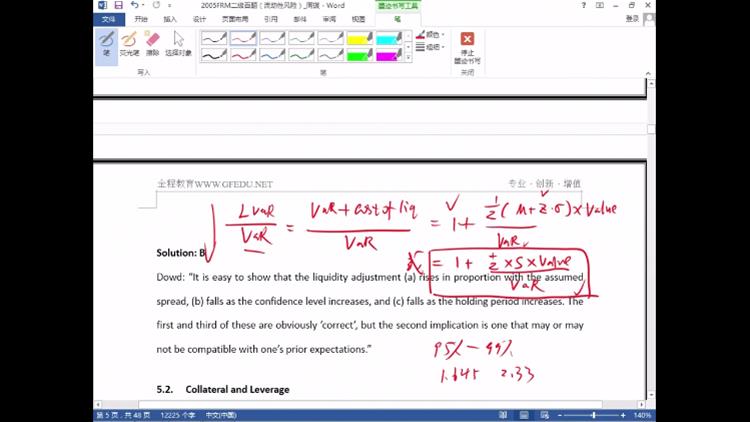 2005FRM二级百题（流动性风险）_周琪 - Word
墨迹书写工具
文件 开始 插入 设计 页面布局 引用 邮件 审阅 视图 笔 登录
笔 荧光笔 橡皮擦 选择对象
颜色
粗细
停止墨迹书写
写入 笔 关闭
金程教育WWW.GFEDU.NET 专业·创新·增值
LVaR / VaR = VaR + cost of liq / VaR = 1 + 1/2 (μ + z·σ) × Value / VaR
= 1 + 1/2 × S × Value / VaR
Solution: B
Dowd: “It is easy to show that the liquidity adjustment (a) rises in proportion with the assumed
spread, (b) falls as the confidence level increases, and (c) falls as the holding period increases. The
first and third of these are obviously ‘correct’, but the second implication is one that may or may
not be compatible with one’s prior expectations.”
95% — 99%
1.645 2.33
5.2. Collateral and Leverage
第 5 页，共 48 页 12225 个字 中文(中国) 140%